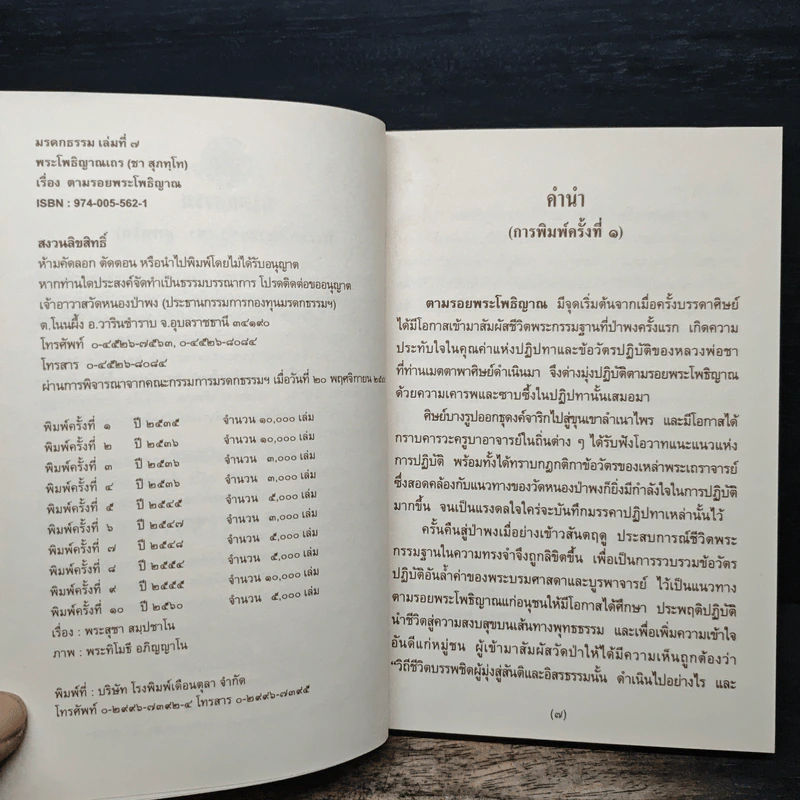 มรดกธรรม เล่มที่ ๗
พระโพธิญาณเถร (ชา สุภทฺโท)
เรื่อง ตามรอยพระโพธิญาณ
ISBN : 974-005-562-1
สงวนลิขสิทธิ์
ห้ามคัดลอก ตัดตอน หรือนำไปพิมพ์โดยไม่ได้รับอนุญาต
หากท่านใดประสงค์จัดทำเป็นธรรมบรรณาการ โปรดติดต่อขออนุญาต
เจ้าอาวาสวัดหนองป่าพง (ประธานกรรมการกองทุนมรดกธรรมฯ)
ต.โนนผึ้ง อ.วารินชำราบ จ.อุบลราชธานี ๓๔๑๙๐
โทรศัพท์ ๐-๔๕๒๖-๗๕๖๓, ๐-๔๕๒๖-๘๐๘๔
โทรสาร ๐-๔๕๒๖-๘๐๘๔
ผ่านการพิจารณาจากคณะกรรมการมรดกธรรมฯ เมื่อวันที่ ๒๐ พฤศจิกายน
พิมพ์ครั้งที่ ๑ ปี ๒๕๓๕ จำนวน ๑๐,๐๐๐ เล่ม
พิมพ์ครั้งที่ ๒ ปี ๒๕๓๖ จำนวน ๑๐,๐๐๐ เล่ม
พิมพ์ครั้งที่ ๓ ปี ๒๕๓๖ จำนวน ๓,๐๐๐ เล่ม
พิมพ์ครั้งที่ ๔ ปี ๒๕๓๖ จำนวน ๓,๐๐๐ เล่ม
พิมพ์ครั้งที่ ๕ ปี ๒๕๔๕ จำนวน ๕,๐๐๐ เล่ม
พิมพ์ครั้งที่ ๖ ปี ๒๕๔๗ จำนวน ๓,๐๐๐ เล่ม
พิมพ์ครั้งที่ ๗ ปี ๒๕๔๘ จำนวน ๕,๐๐๐ เล่ม
พิมพ์ครั้งที่ ๘ ปี ๒๕๕๔ จำนวน ๕,๐๐๐ เล่ม
พิมพ์ครั้งที่ ๙ ปี ๒๕๕๕ จำนวน ๑๐,๐๐๐ เล่ม
พิมพ์ครั้งที่ ๑๐ ปี ๒๕๖๐ จำนวน ๕,๐๐๐ เล่ม
เรื่อง : พระสุชา สมฺปชาโน
ภาพ : พระทิโมธี อภิญญาโน
พิมพ์ที่ : บริษัท โรงพิมพ์เดือนตุลา จำกัด
โทรศัพท์ ๐-๒๙๙๖-๗๓๙๒-๔ โทรสาร ๐-๒๙๙๖-๗๓๙๕
คำนำ
(การพิมพ์ครั้งที่ ๑)
ตามรอยพระโพธิญาณ มีจุดเริ่มต้นจากเมื่อครั้งบรรดาศิษย์
ได้มีโอกาสเข้ามาสัมผัสชีวิตพระกรรมฐานที่ป่าพงครั้งแรก เกิดความ
ประทับใจในคุณค่าแห่งปฏิปทาและข้อวัตรปฏิบัติของหลวงพ่อชา
ที่ท่านเมตตาพาศิษย์ดำเนินมา จึงต่างมุ่งปฏิบัติตามรอยพระโพธิญาณ
ด้วยความเคารพและซาบซึ้งในปฏิปทานั้นเสมอมา
ศิษย์บางรูปออกธุดงค์จาริกไปสู่ขุนเขาลำเนาไพร และมีโอกาสได้
กราบคารวะครูบาอาจารย์ในถิ่นต่าง ๆ ได้รับฟังโอวาทแนะแนวแห่ง
การปฏิบัติ พร้อมทั้งได้ทราบกฎกติกาข้อวัตรของเหล่าพระเถราจารย์
ซึ่งสอดคล้องกับแนวทางของวัดหนองป่าพงก็ยิ่งมีกำลังใจในการปฏิบัติ
มากขึ้น จนเป็นแรงดลใจใคร่จะบันทึกมรรคาปฏิปทาเหล่านั้นไว้
ครั้นคืนสู่ป่าพงเมื่อย่างเข้าวสันตฤดู ประสบการณ์ชีวิตพระ
กรรมฐานในความทรงจำจึงถูกลิขิตขึ้น เพื่อเป็นการรวบรวมข้อวัตร
ปฏิบัติอันล้ำค่าของพระบรมศาสดาและบูรพาจารย์ ไว้เป็นแนวทาง
ตามรอยพระโพธิญาณแก่อนุชนให้มีโอกาสได้ศึกษา ประพฤติปฏิบัติ
นำชีวิตสู่ความสงบสุขบนเส้นทางพุทธธรรม และเพื่อเพิ่มความเข้าใจ
อันดีแก่หมู่ชน ผู้เข้ามาสัมผัสวัดป่าให้ได้มีความเห็นถูกต้องว่า
“วิถีชีวิตบรรพชิตผู้มุ่งสู่สันติและอิสรธรรมนั้น ดำเนินไปอย่างไร และ
(๗)